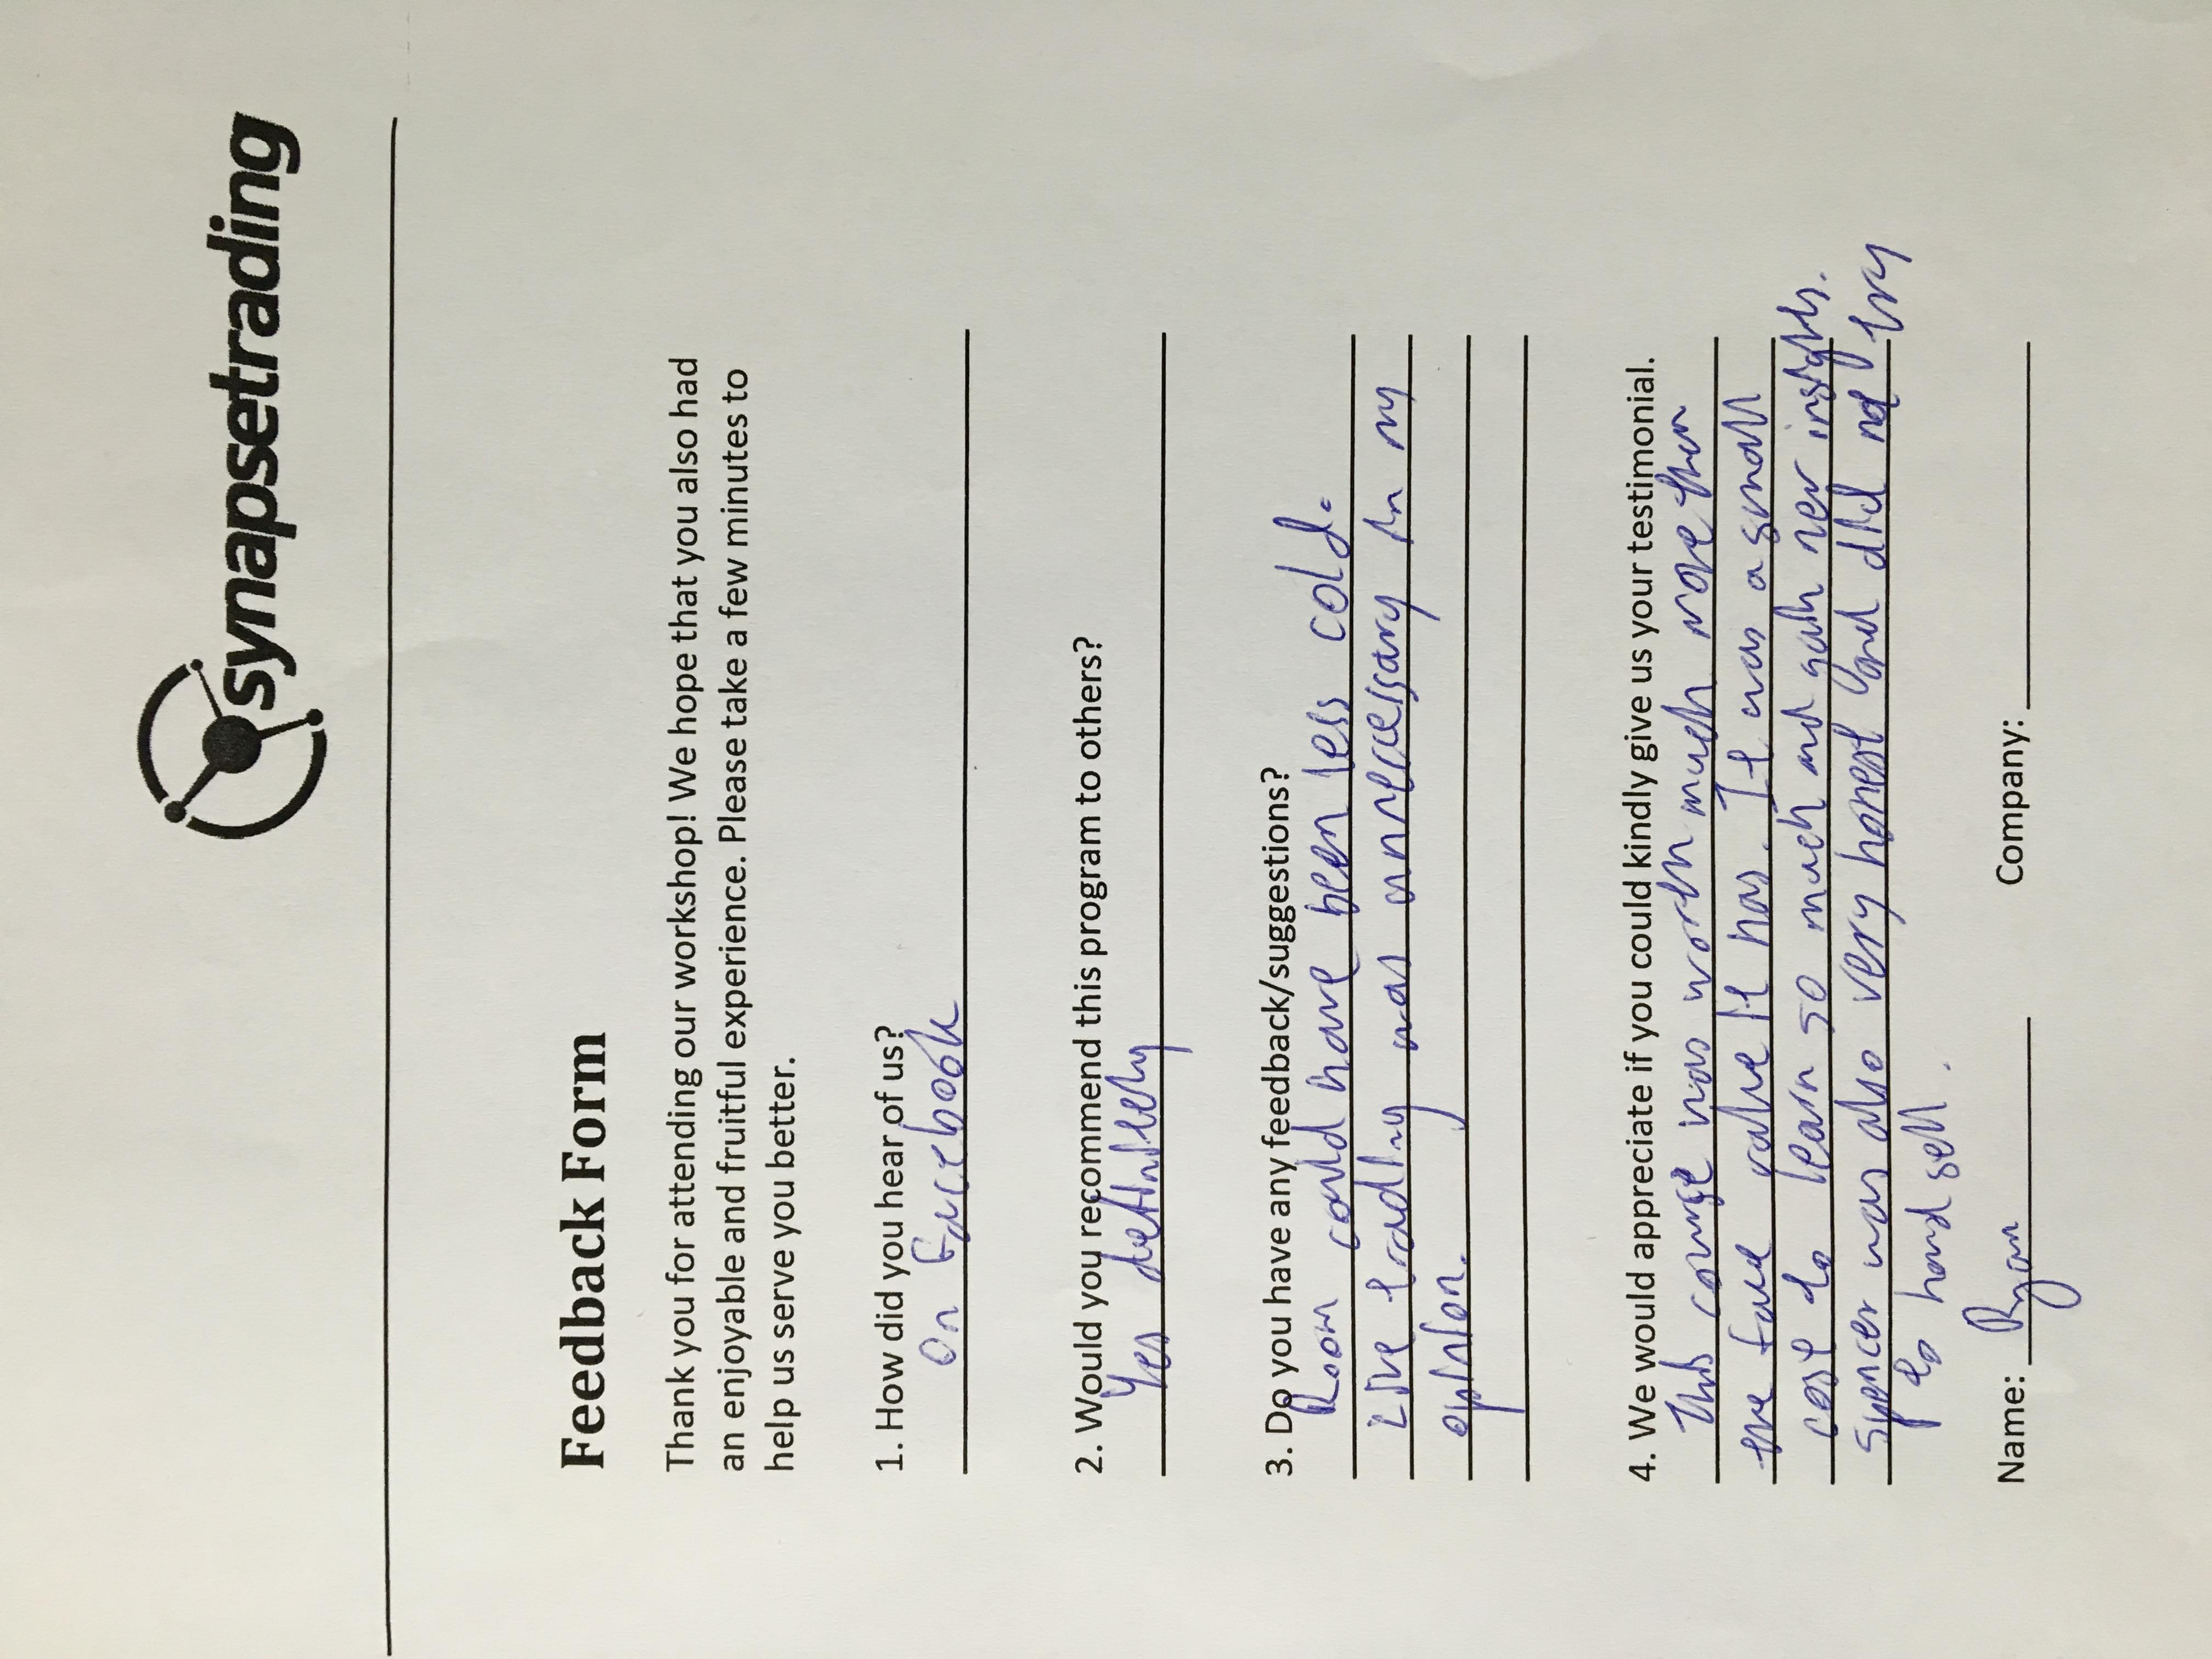 synapsetrading
Feedback Form
Thank you for attending our workshop! We hope that you also had
an enjoyable and fruitful experience. Please take a few minutes to
help us serve you better.
1. How did you hear of us?
On Facebook
2. Would you recommend this program to others?
Yes definitely
3. Do you have any feedback/suggestions?
Room could have been less cold.
Live trading was unnecessary in my
opinion.
4. We would appreciate if you could kindly give us your testimonial.
This course was worth much more than
the face value it has. It was a small
cost to learn so much and gain new insights.
Spencer was also very honest and did not try
to hard sell.
Name: Ryan Company: